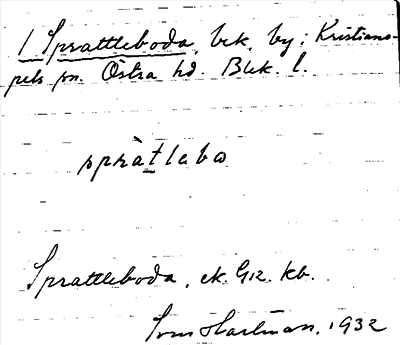 1 Sprattleboda, bek. by; Kristiano-
pels sn. Östra hd. Blek. l.
spràtlebo
Sprattleboda, ek. G12. kb.
Hartman, 1932